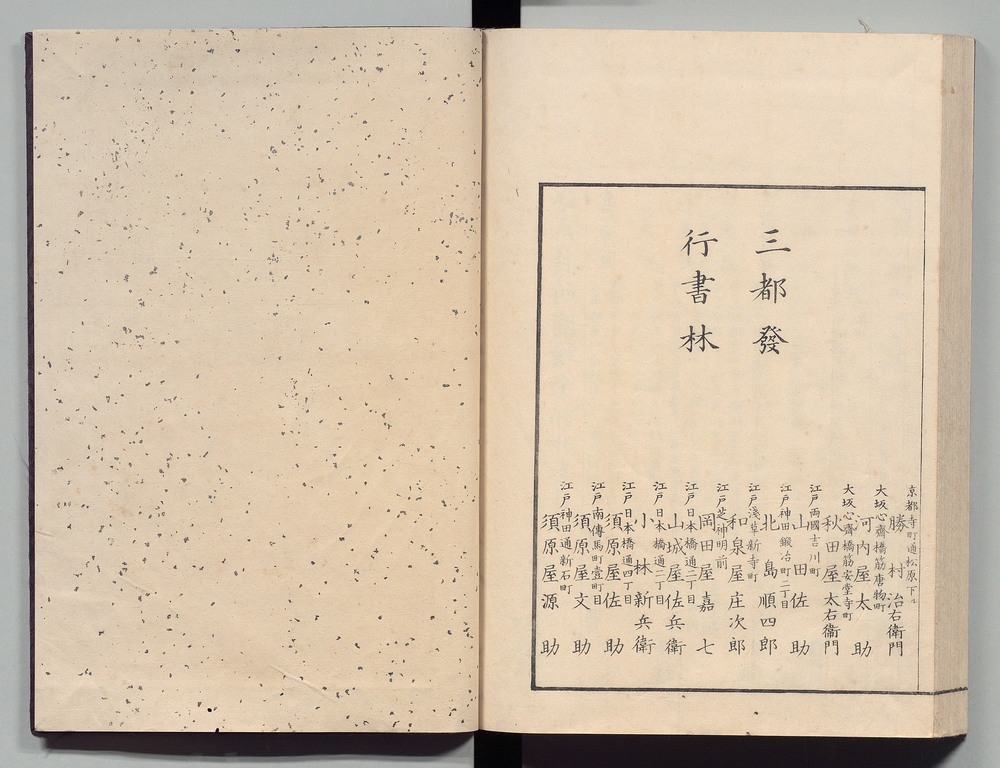 三都發
行書林
京都寺町通松原下ル
勝村治右衛門
大坂心齋橋筋唐物町
河内屋太助
大坂心齋橋筋安堂寺町
秋田屋太右衛門
江戸両國吉川町
山田佐助
江戸神田鍛冶町二丁目
北島順四郎
江戸淺草新寺町
和泉屋庄次郎
江戸芝神明前
岡田屋嘉七
江戸日本橋通二丁目
山城屋佐兵衛
江戸日本橋通二丁目
小林新兵衛
江戸日本橋通四丁目
須原屋佐助
江戸南傳馬町壹町目
須原屋文助
江戸神田通新石町
須原屋源助